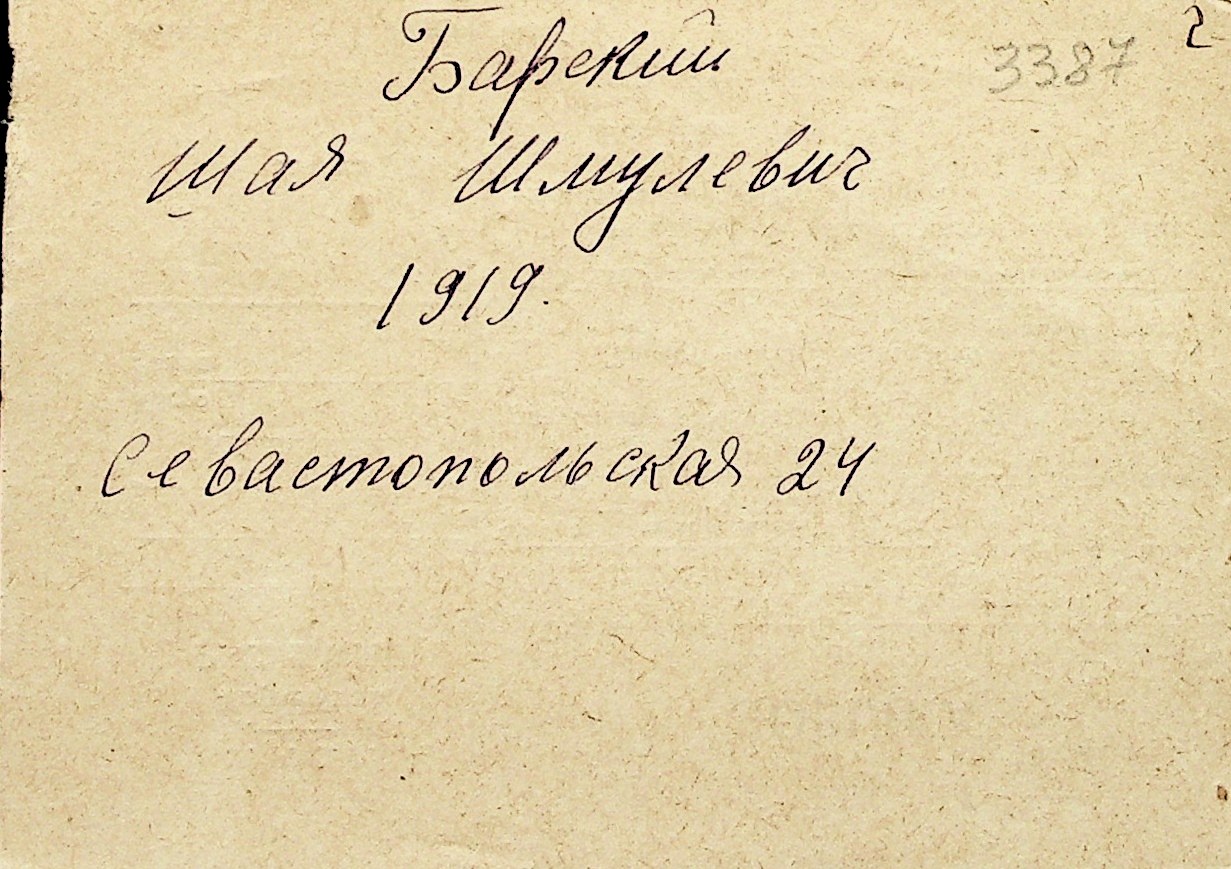 Барский
3387
2
Шая Шмулевич
1919.
Севастопольская 24